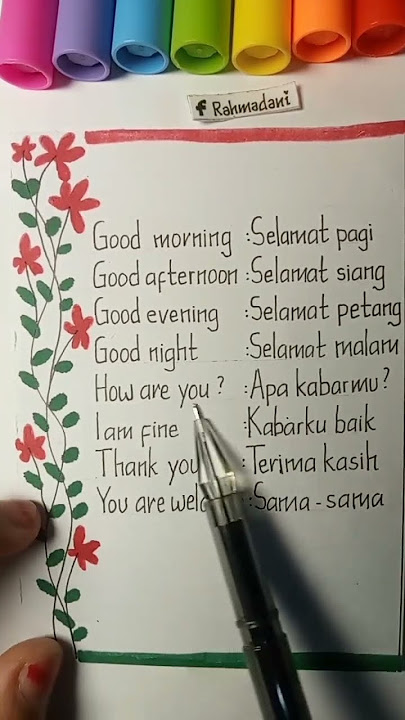 f Rahmadani
Good morning :Selamat pagi
Good afternoon :Selamat siang
Good evening :Selamat petang
Good night :Selamat malam
How are you ? :Apa kabarmu?
I am fine :Kabarku baik
Thank you :Terima kasih
You are :Sama-sama